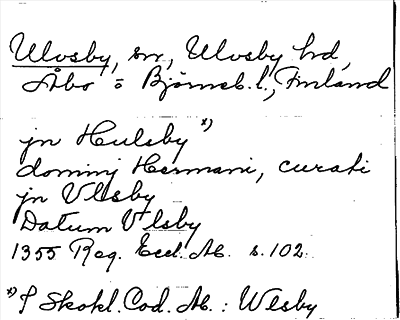 Ulvsby, sn, Ulvsby hd,
Åbo o Björneb. l., Finland
jn Hulsby x)
dominj Hermani, curati
jn Vlsby
Datum Vlsby
1355 Reg. Eccl. Ab. s. 102.
x) I Skokl. Cod. Ab.: Wlsby